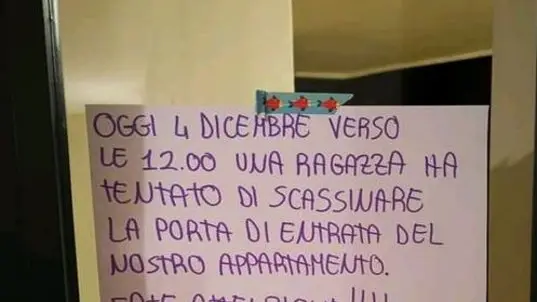 OGGI 4 DICEMBRE VERSO
LE 12.00 UNA RAGAZZA HA
TENTATO DI SCASSINARE
LA PORTA DI ENTRATA DEL
NOSTRO APPARTAMENTO.